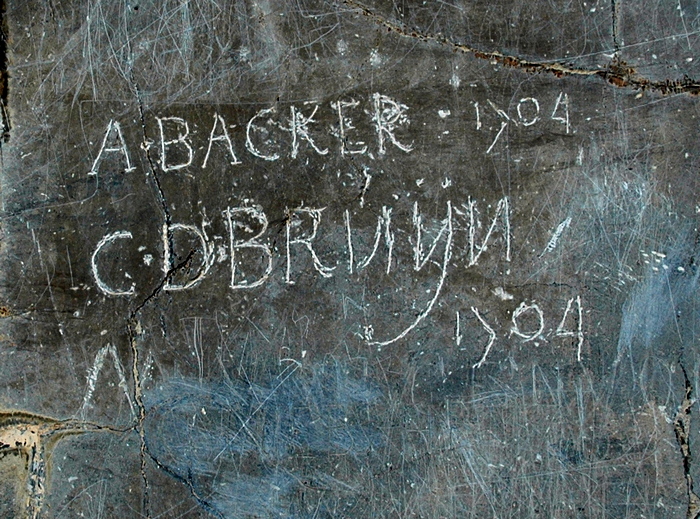 A BACKER 1704
C D BRUYN
1704